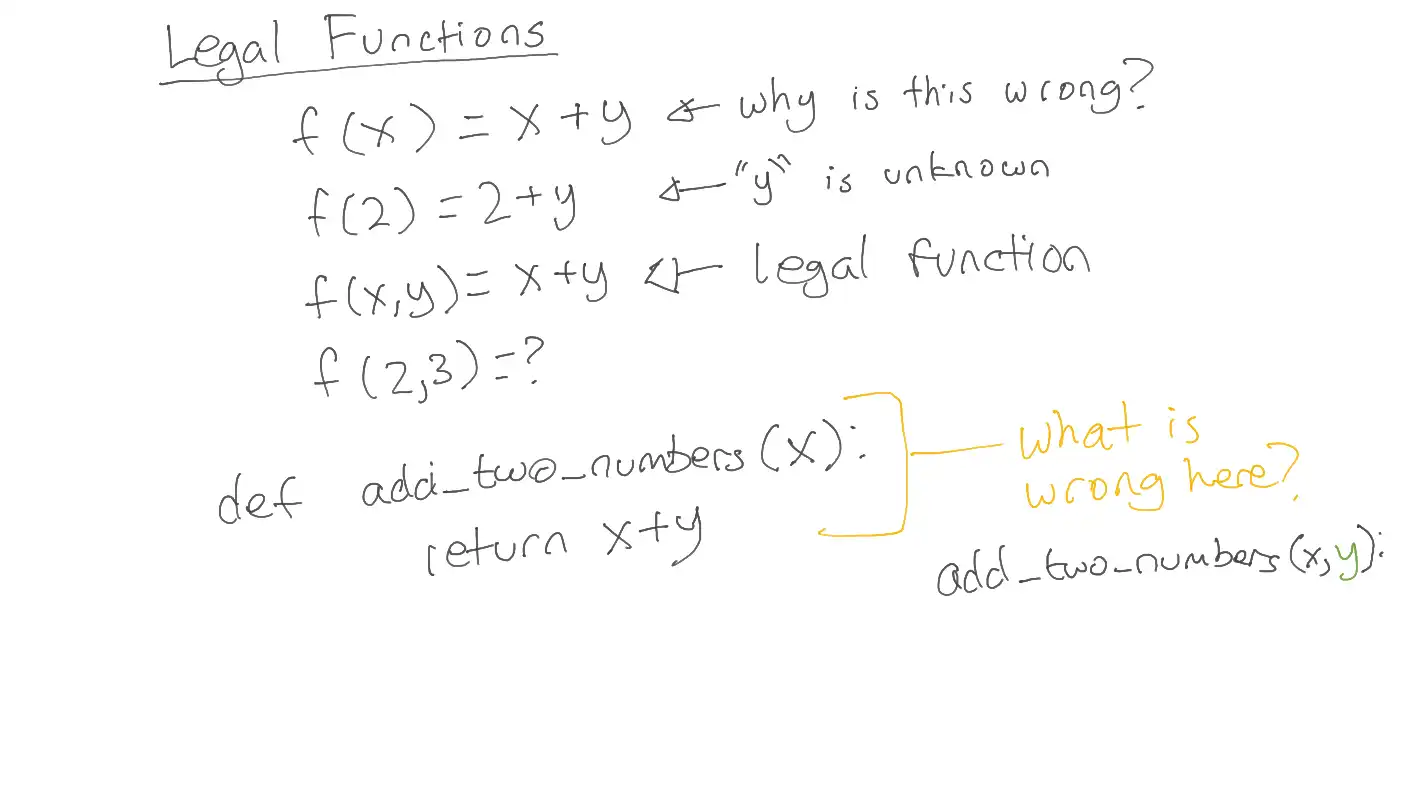 Legal Functions
f(x) = x+y ← why is this wrong?
f(2) = 2+y ← "y" is unknown
f(x,y)= x+y ← legal function
f(2,3)=?
def add_two_numbers(x):
return x+y
what is
wrong here?
add_two_numbers(x,y):